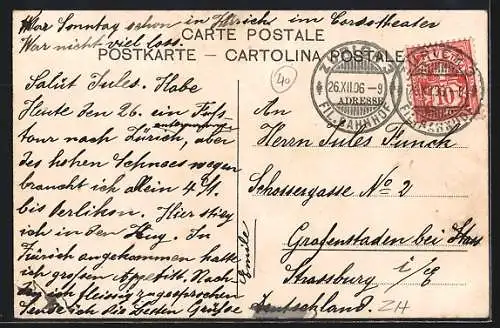 War Sonntag schon in Zürich im Corsotheater
War nicht viel loss.
CARTE POSTALE
POSTKARTE - CARTOLINA POSTALE
Salut Jules. Habe
Heute den 26. ein Fuss-
tour nach Zürich, aber
unternommen
des hohen Schnees wegen
braucht ich allein 4 St.
bis Oerlikon. Hier stieg
ich in den Zug. In
Zürich angekommen hatte
ich grossen Appetitt. Nach-
ich fleissig zugesprochen
sende ich die besten Grüsse
Emile
40
26.XII.06 - 9
FIL. BAHNHOF
ADRESSE
10
An
Herrn Jules
Schossergasse No 2
Grafenstaden bei
Strassburg i/E
Deutschland.
ZH